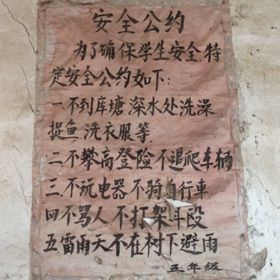 安全公约
为了确保学生安全特
定安全公约如下:
一不到库塘深水处洗澡
捉鱼洗衣服等
二不攀高登险不追爬车辆
三不玩电器不骑自行車
四不骂人不打架斗殴
五雷雨天不在树下避雨
五年级